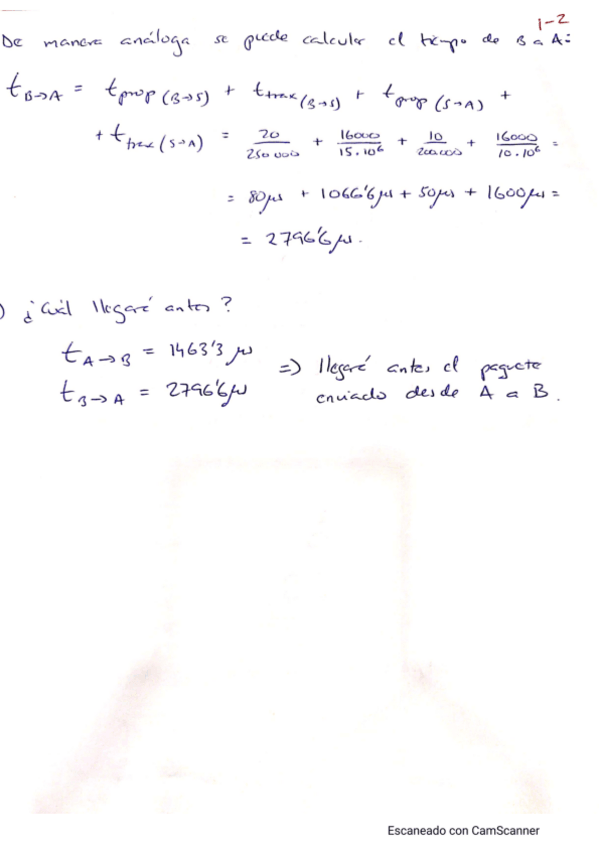 1-2
De manera análoga se puede calcular el tiempo de B a A:
t B→A = t prop (B→S) + t trax (B→S) + t prop (S→A) +
+ t trax (S→A) = 20/250 000 + 16000/15·10⁶ + 10/200 000 + 16000/10·10⁶ =
= 80µs + 1066'6µs + 50µs + 1600µs =
= 2796'6µs.
) ¿Cuál llegará antes?
t A→B = 1463'3 µs
t B→A = 2796'6µs
=> llegará antes el paquete
enviado desde A a B.
Escaneado con CamScanner